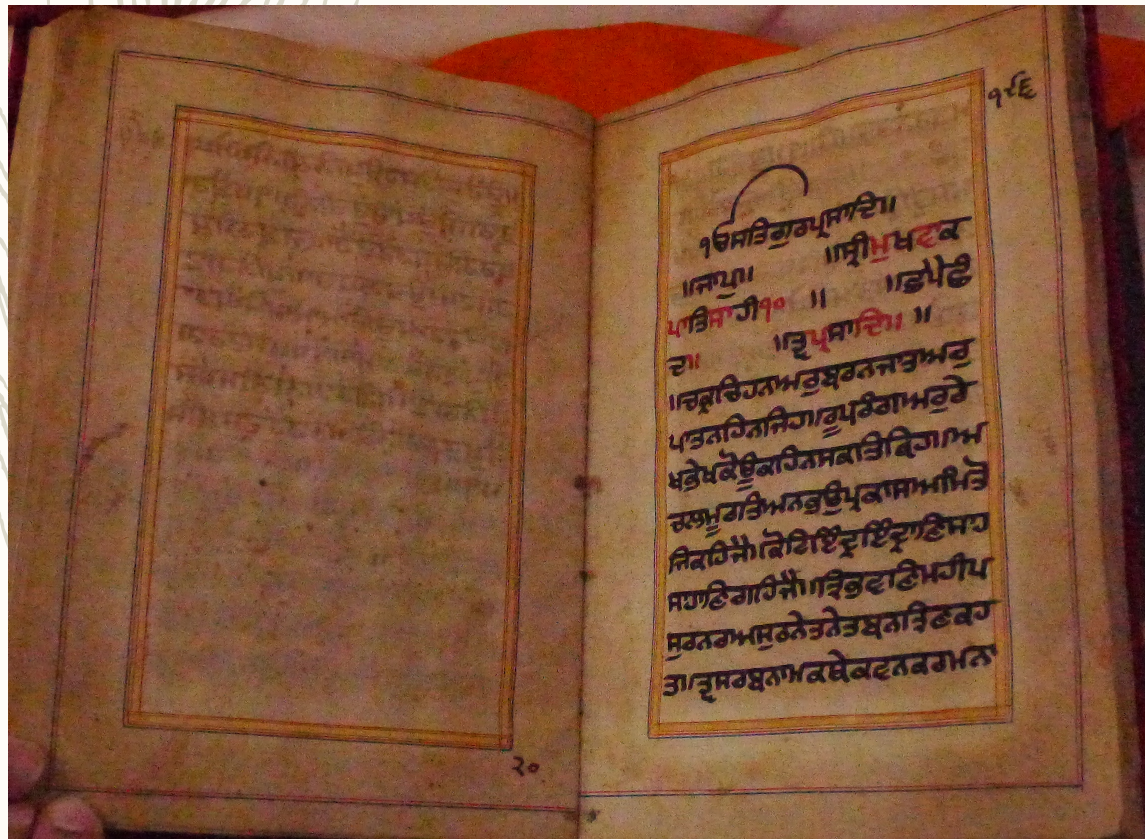 ੧੯੬
ੴਸਤਿਗੁਰਪ੍ਰਸਾਦਿ॥
॥ਜਾਪੁ॥ ॥ਸ੍ਰੀਮੁਖਵਾਕ
ਪਾਤਿਸਾਹੀ੧੦ ॥ ॥ਛਪੈਛੰ
ਦ॥ ॥ਤ੍ਵਪ੍ਰਸਾਦਿ॥ ॥
॥ਚਕ੍ਰਚਿਹਨਅਰੁਬਰਨਜਾਤਅਰੁ
ਪਾਤਨਹਿਨਜਿਹ॥ਰੂਪਰੰਗਅਰੁਰੇ
ਖਭੇਖਕੋਊਕਹਿਨਸਕਤਿਕਿਹ॥ਅ
ਚਲਮੂਰਤਿਅਨਭਉਪ੍ਰਕਾਸਅਮਿਤੋ
ਜਿਕਹਿਜੈ॥ਕੋਟਿਇੰਦ੍ਰਇੰਦ੍ਰਾਣਿਸਾਹ
ਸਾਹਾਣਿਗਹਿਜੈ॥ਤ੍ਰਿਭਵਣਿਮਹੀਪ
ਸੁਰਨਰਅਸੁਰਨੇਤਨੇਤਬਨਤ੍ਰਿਣਕਹ
ਤ॥ਤ੍ਵਸਰਬਨਾਮਕਥੇਕਵਨਕਰਮਨਾ
੨੦